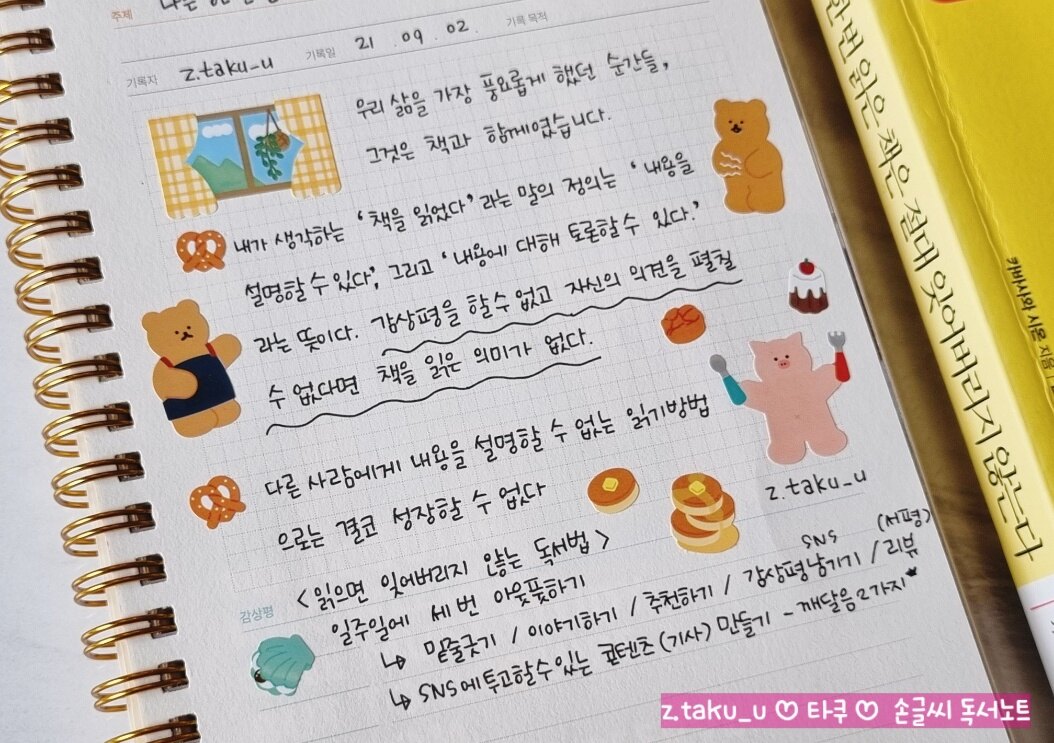 주제
기록자 z.taku_u 기록일 21 . 09 . 02. 기록 목적
우리 삶을 가장 풍요롭게 했던 순간들,
그것은 책과 함께였습니다.
내가 생각하는 '책을 읽었다' 라는 말의 정의는 '내용을
설명할 수 있다', 그리고 '내용에 대해 토론할 수 있다.'
라는 뜻이다. 감상평을 할 수 없고 자신의 의견을 펼칠
수 없다면 책을 읽은 의미가 없다.
다른 사람에게 내용을 설명할 수 없는 읽기방법
으로는 결코 성장할 수 없다
z.taku_u
<읽으면 잊어버리지 않는 독서법>
감상평
일주일에 세 번 아웃풋하기
↳ 밑줄긋기 / 이야기하기 / 추천하기 / SNS 감상평남기기 / 리뷰 (서평)
↳ SNS에 투고할수있는 콘텐츠(기사) 만들기 - 깨달음 2가지
한 번 읽은 책은 절대 잊어버리지 않는다
카바사와 시온 지음
z.taku_u ♡ 타쿠 ♡ 손글씨 독서노트